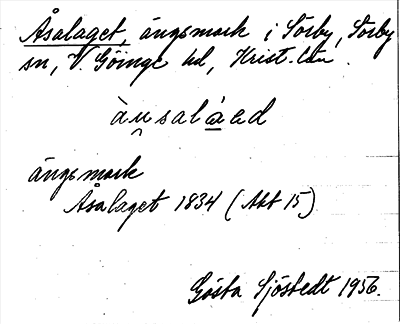 Åsalaget, ängsmark i Sörby, Sörby
sn, V. Göinge hd, Krist. län.
àu̯salá̲ed
ängsmark
Åsalaget 1834 (Akt 15)
Gösta Sjöstedt 1956.